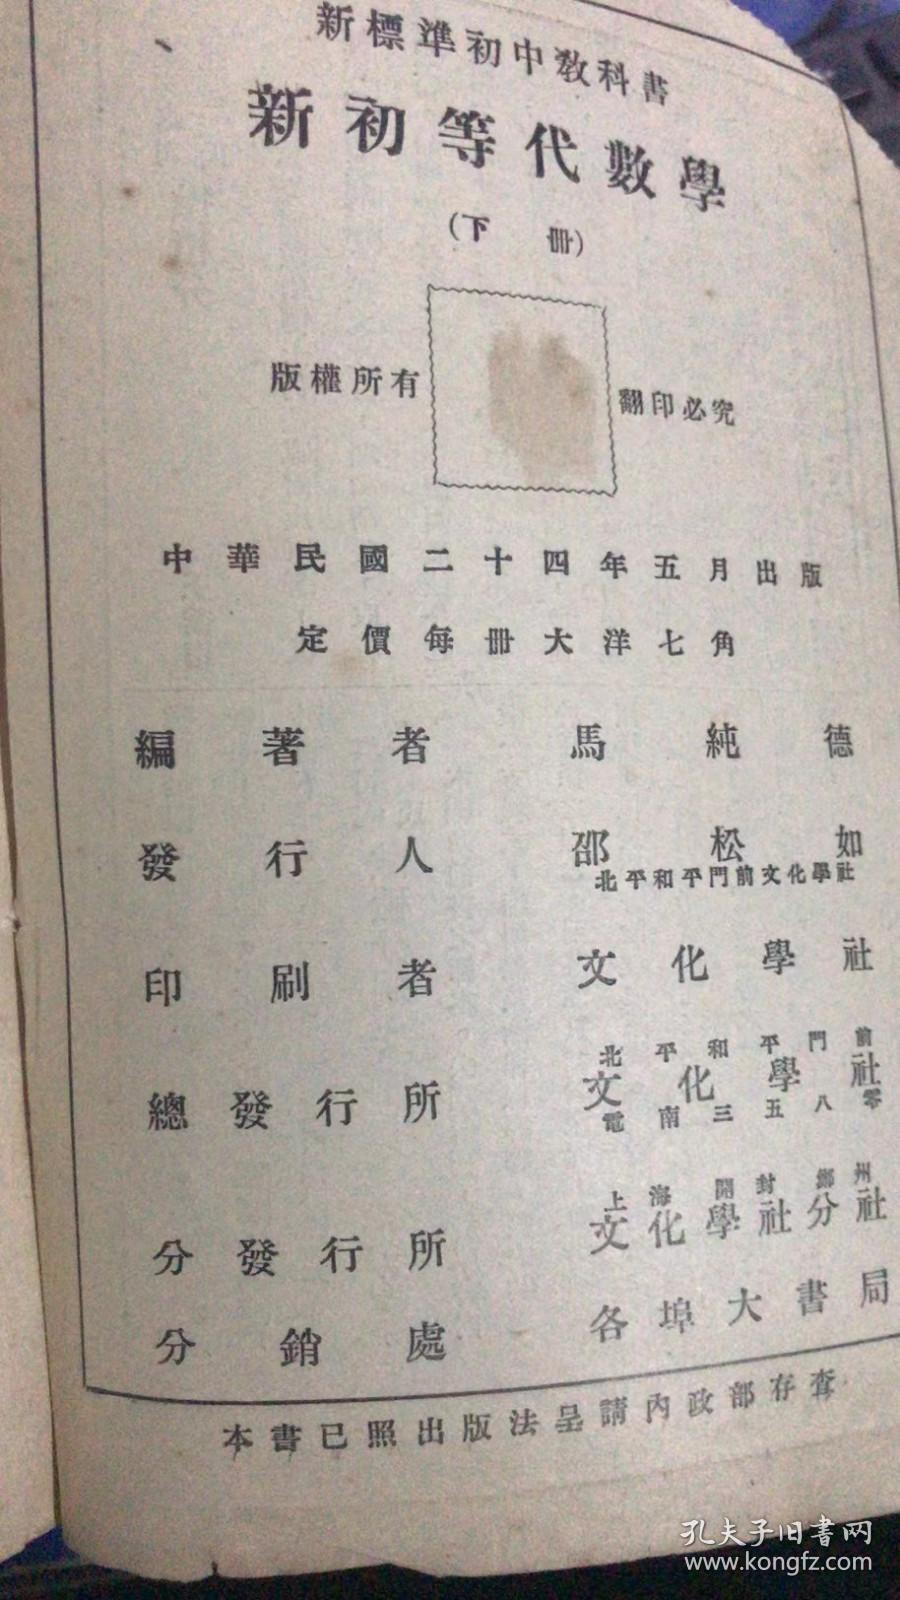 新標準初中教科書
新初等代數學
(下冊)
版權所有 翻印必究
中華民國二十四年五月出版
定價每冊大洋七角
編著者 馬純德
發行人 邵松如
北平和平門前文化學社
印刷者 文化學社
北平和平門前
總發行所 文化學社
電南三五八零
上海開封鄭州
分發行所 文化學社分社
分銷處 各埠大書局
本書已照出版法呈請內政部存查
孔夫子旧書网
www.kongfz.com